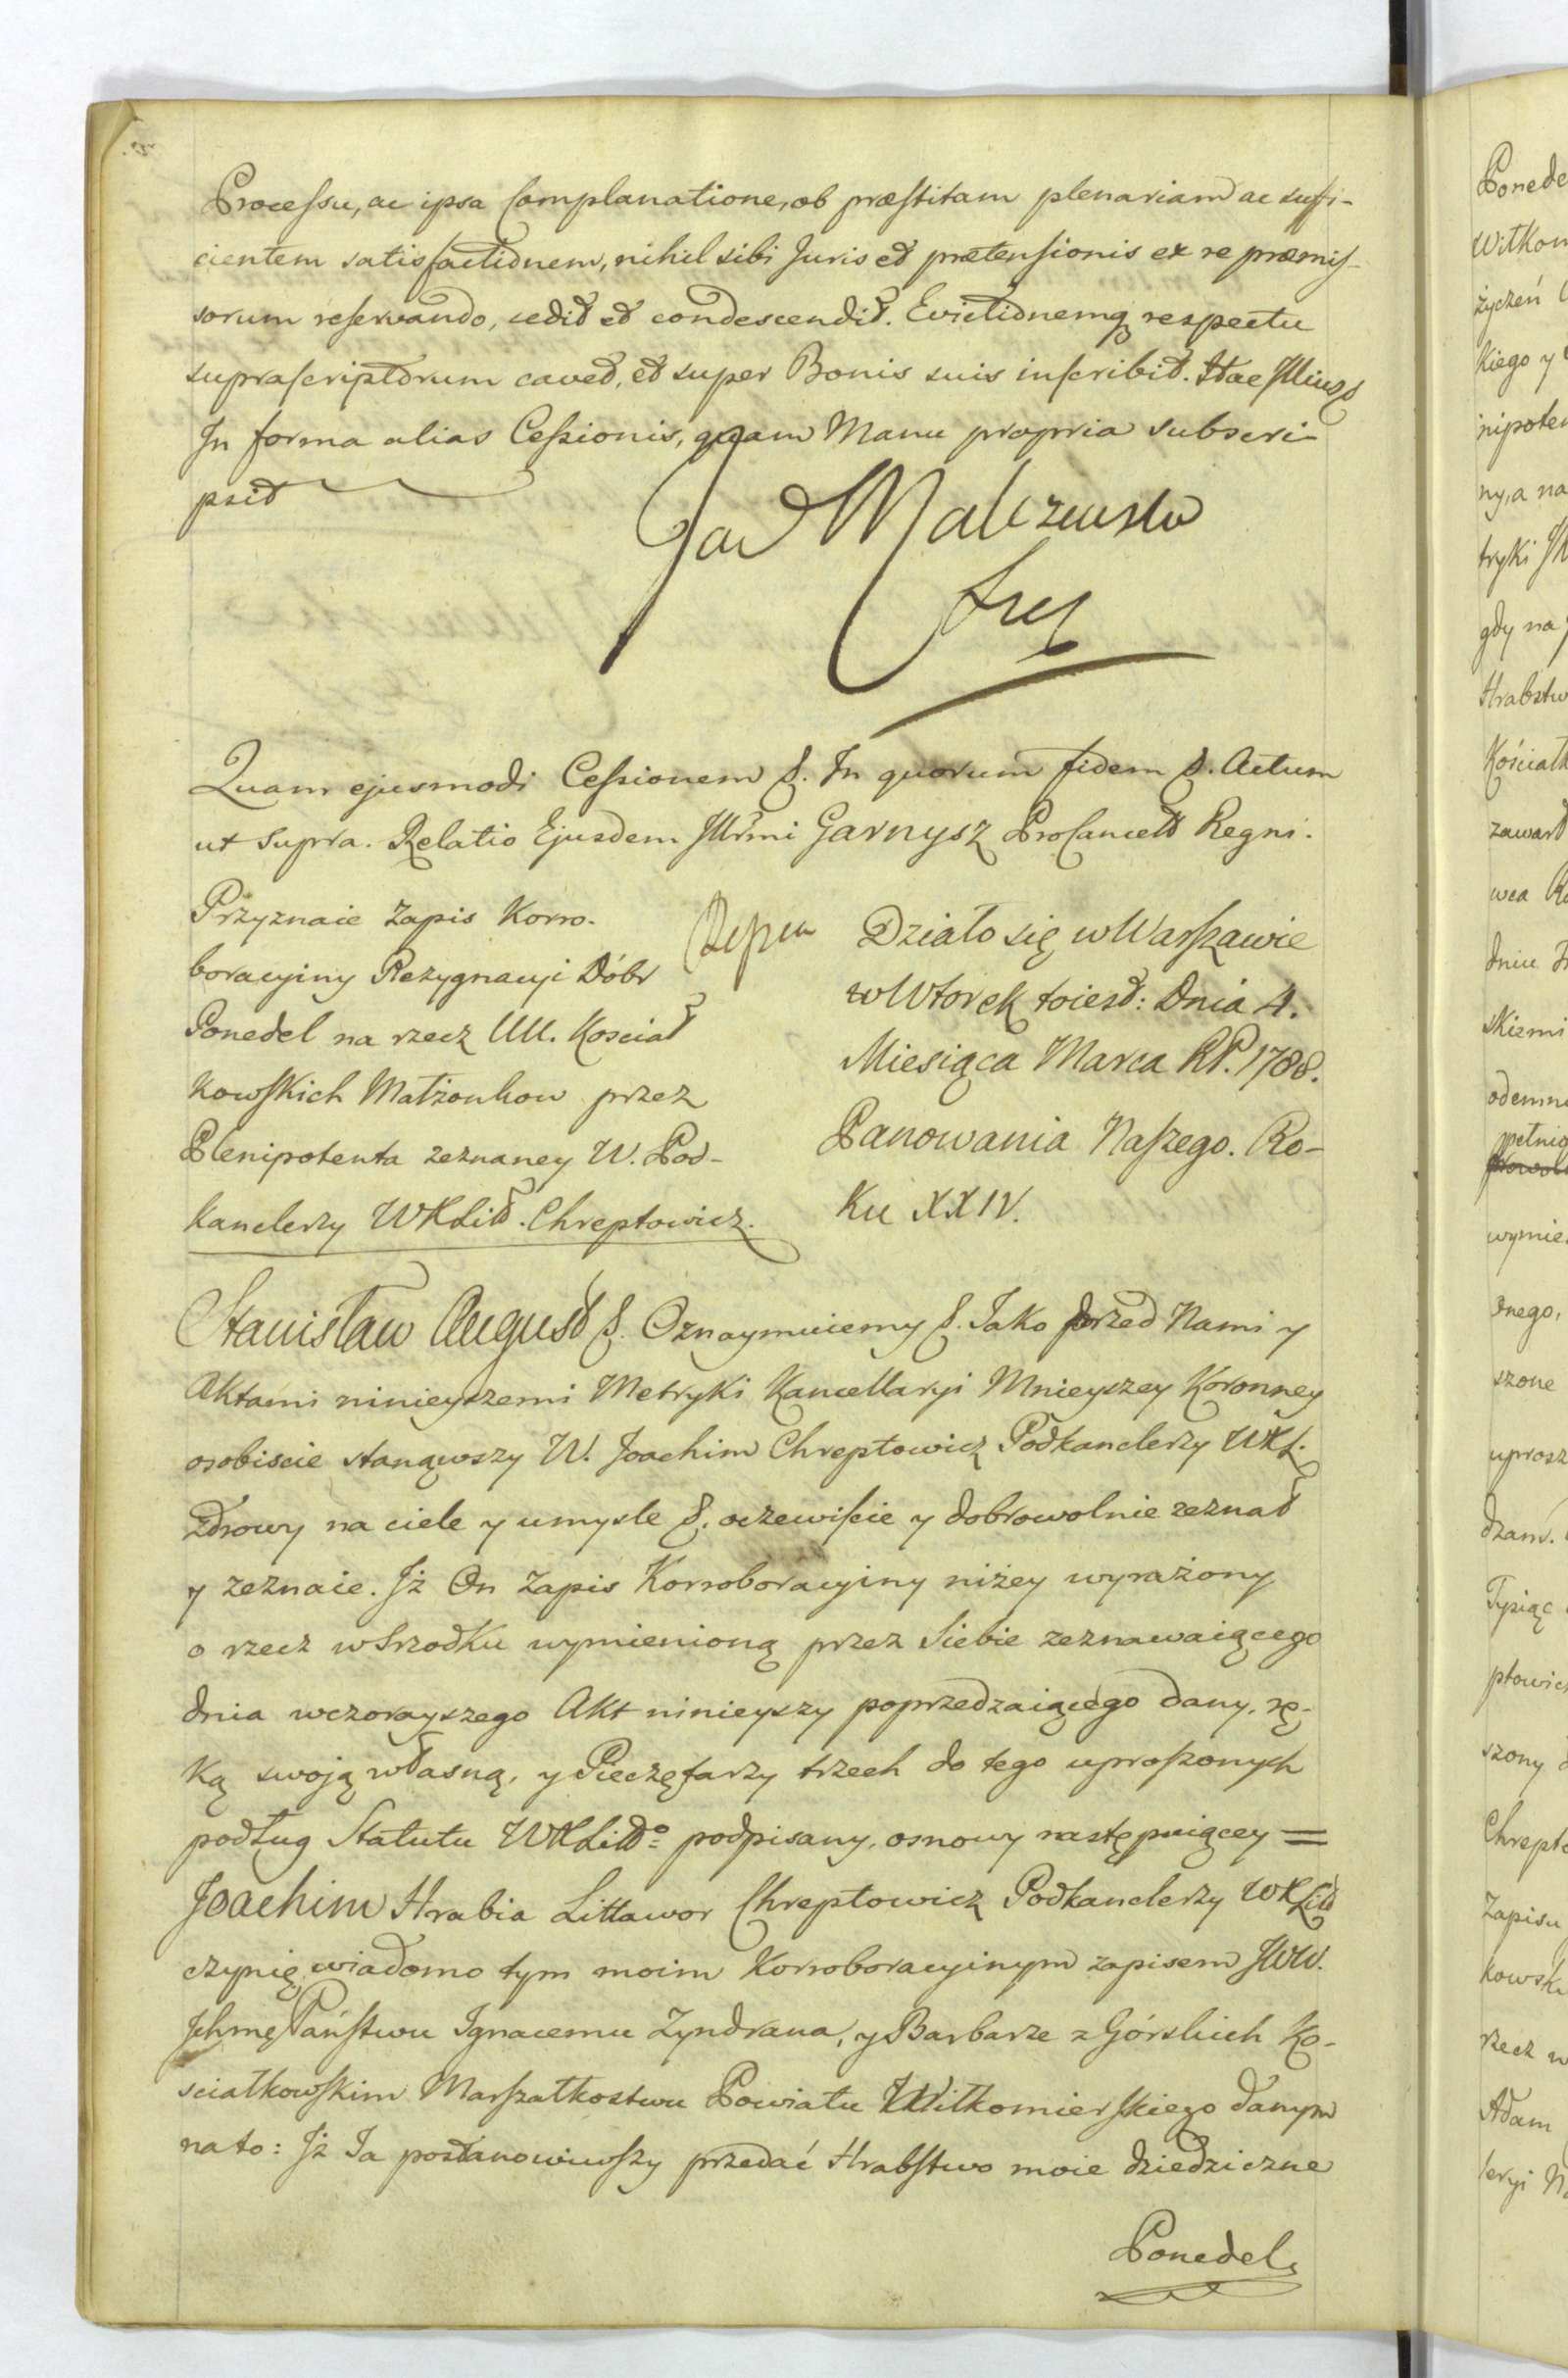 Processu, ac ipsa Complanatione, ob præstitam plenariam ac suffi-
cientem satisfactionem, nihil sibi Juris et prætensionis ex re præmis-
sorum reservando, cedit et condescendit. Evictionemq respectu
suprascriptorum cavet, et super Bonis suis inscribit. Hac
In forma alias Cessionis, quam Manu propria subscri-
psit
Malczewski
Quam ejusmodi Cessionem &. In quorum fidem &. Actum
ut supra. Relatio Ejusdem Illrmi Garnysz ProCancell Regni.
Przyznaie Zapis Korro-
boracyiny Rezygnacyi Dóbr
Ponedel na rzecz UU. Kosciał
kowskich Małżonkow przez
Plenipotenta zeznaney W. Pod-
kanclerzy WKLitt. Chreptowicz.
Działo się w Warszawie
w Wtorek toiest: Dnia 4.
Miesiąca Marca RP. 1788.
Panowania Naszego. Ro-
ku XXIV.
Stanisław August &. Oznaymuiemy &. Jako przed Nami y
Aktami ninieyszemi Metryki Kancellaryi Mnieyszey Koronney
osobiscie stanąwszy W. Joachim Chreptowicz Podkanclerzy WKL.
zdrowy na ciele y umysle &. oczewiście y dobrowolnie zeznał
y zeznaie. Iż On Zapis Korroboracyiny niżey wyrażony
o rzecz wsrzodku wymienioną przez Siebie zeznawaiącego
dnia wczorayszego Akt ninieyszy poprzedzaiącego dany, rę-
ką swoją własną, y Pieczętarzy trzech do tego uproszonych
podług Statutu WKLitto podpisany, osnowy następuiącey =
Joachim Hrabia Littawor Chreptowicz Podkanclerzy WKLitt
czynię wiadomo tym moim Korroboracyinym zapisem JWW.
Ichmę Państwu Ignacemu Zyndrana, y Barbarze z Górskich Ko-
sciałkowskim Marszałkostwu Powiatu Wiłkomierskiego danym
na to: Iż Ja postanowiwszy przedać Hrabstwo moie dziedziczne
Ponedel
Ponede
Witkom
życzeń
kiego y
nipoten
ny, a na
tryki
gdy na
Hrabstw
Kościałk
zawart
wca
dniu
skiemi
odemn
pełnio
wymie
onego,
szone
uprosz
dzani.
Tysiąc
ptowic
szony
Chrept
Zapisu
kowsk
rzecz w
Adam